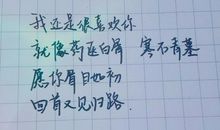 我还是很喜欢你
就像药医白屑 寒不青墓
愿你眉目如初
回首又见归路.